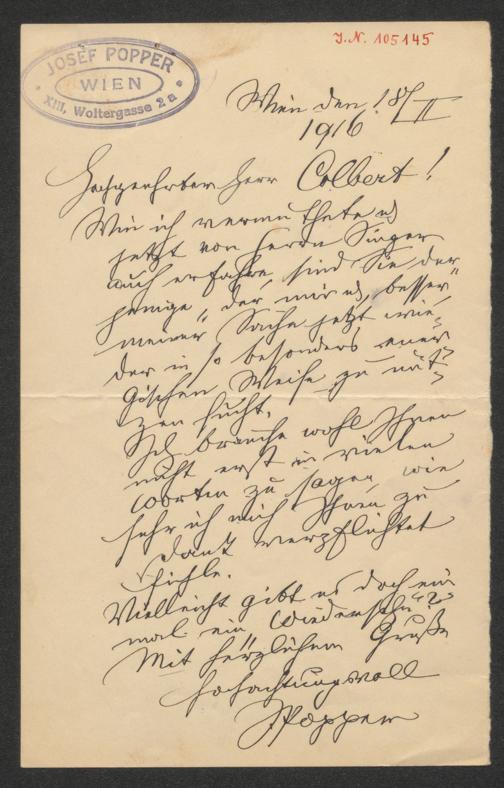 J.N. 105145
JOSEF POPPER
WIEN
XIII, Woltergasse 2a
Wien den 18/II
1916.
Hochgeehrter Herr Colbert!
Wie ich vermuthete u
jetzt von Herrn Singer
auch erfahre, sind Sie der
jenige, der mir u, besser
meiner Sache jetzt wie-
der in so besonders ener-
gischen Weise zu nüt-
zen sucht.
Ich brauche wohl Ihnen
nicht erst in vielen
Worten zu sagen wie
sehr ich mich Ihnen zu
Dank verpflichtet
fühle.
Vielleicht gibt es doch ein
mal ein "Wiedersehn"?
Mit herzlichem Gruße
hochachtungsvoll
JPopper